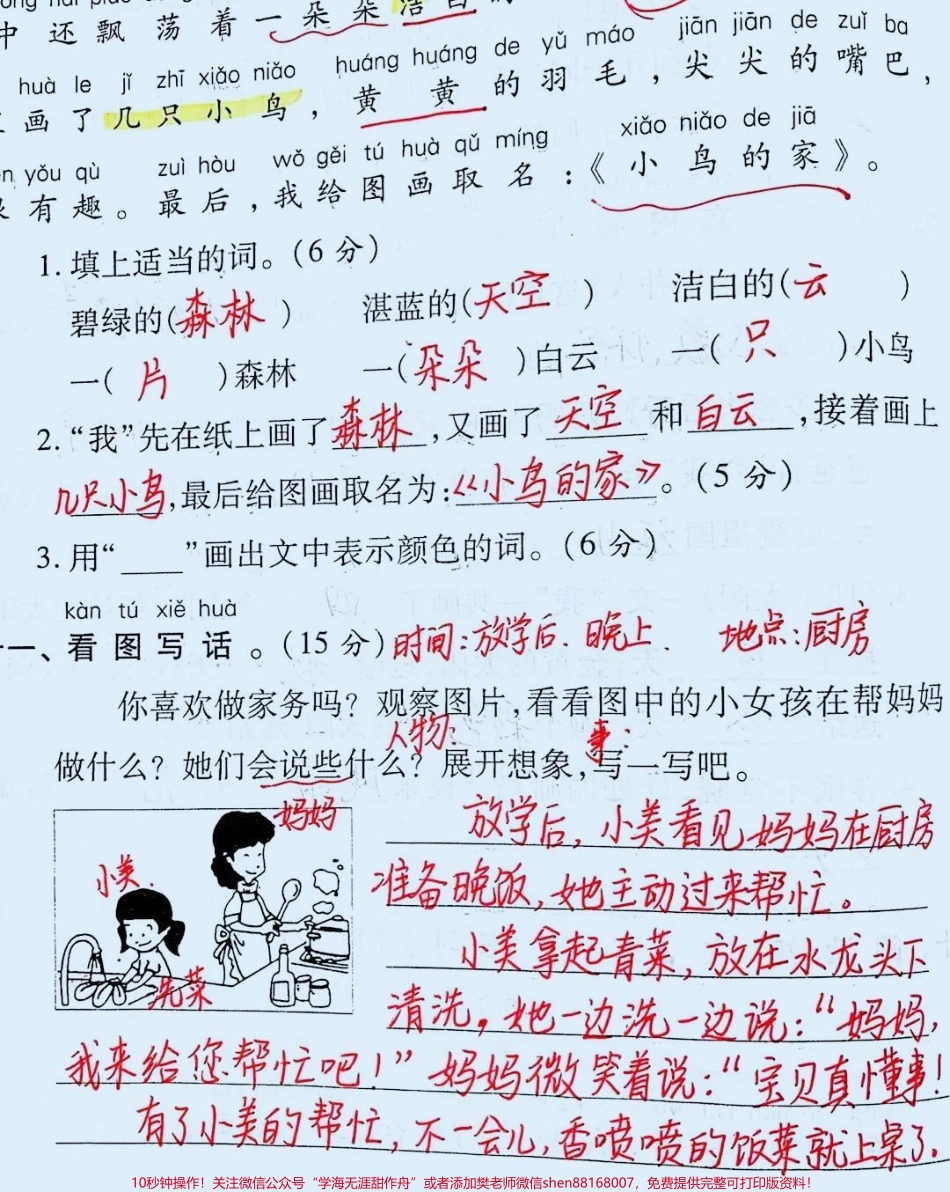 中还飘荡着一朵朵洁白的
huà le jǐ zhī xiǎo niǎo huáng huáng de yǔ máo jiān jiān de zuǐ ba
画了几只小鸟，黄黄的羽毛，尖尖的嘴巴，
yǒu qù zuì hòu wǒ gěi tú huà qǔ míng xiǎo niǎo de jiā
有趣。最后，我给图画取名：《小鸟的家》。
1. 填上适当的词。（6分）
碧绿的（森林） 湛蓝的（天空） 洁白的（云）
一（片）森林 一（朵朵）白云 一（只）小鸟
2. “我”先在纸上画了森林，又画了天空和白云，接着画上
几只小鸟，最后给图画取名为：《小鸟的家》。（5分）
3. 用“___”画出文中表示颜色的词。（6分）
kàn tú xiě huà
一、看图写话。（15分）时间：放学后.晚上. 地点：厨房
你喜欢做家务吗？观察图片，看看图中的小女孩在帮妈妈
人物： 事：
做什么？她们会说些什么？展开想象，写一写吧。
妈妈
小美
洗菜
放学后，小美看见妈妈在厨房
准备晚饭，她主动过来帮忙。
小美拿起青菜，放在水龙头下
清洗，她一边洗一边说：“妈妈，
我来给您帮忙吧！”妈妈微笑着说：“宝贝真懂事！
有了小美的帮忙，不一会儿，香喷喷的饭菜就上桌了.
10秒钟操作！关注微信公众号“学海无涯甜作舟”或者添加樊老师微信shen88168007，免费提供完整可打印版资料！